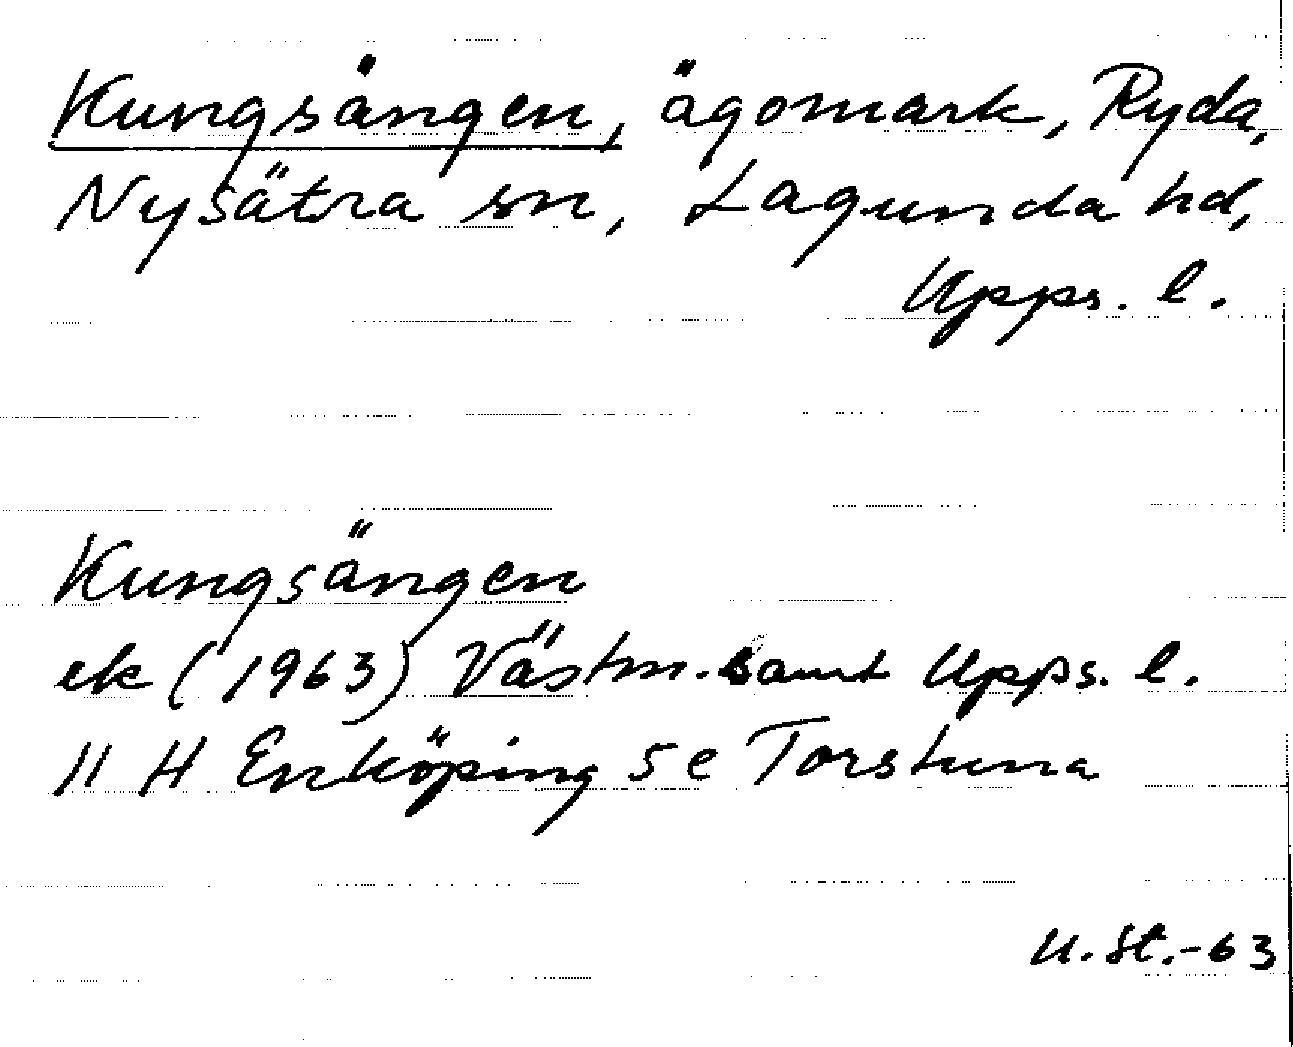 Kungsängen, ägomark, Ryda,
Nysätra sn, Lagunda hd,
Upps. l.
Kungsängen
ek (1963) Västm. samt Upps. l.
11 H Enköping 5e Torstuna
U. St. -63